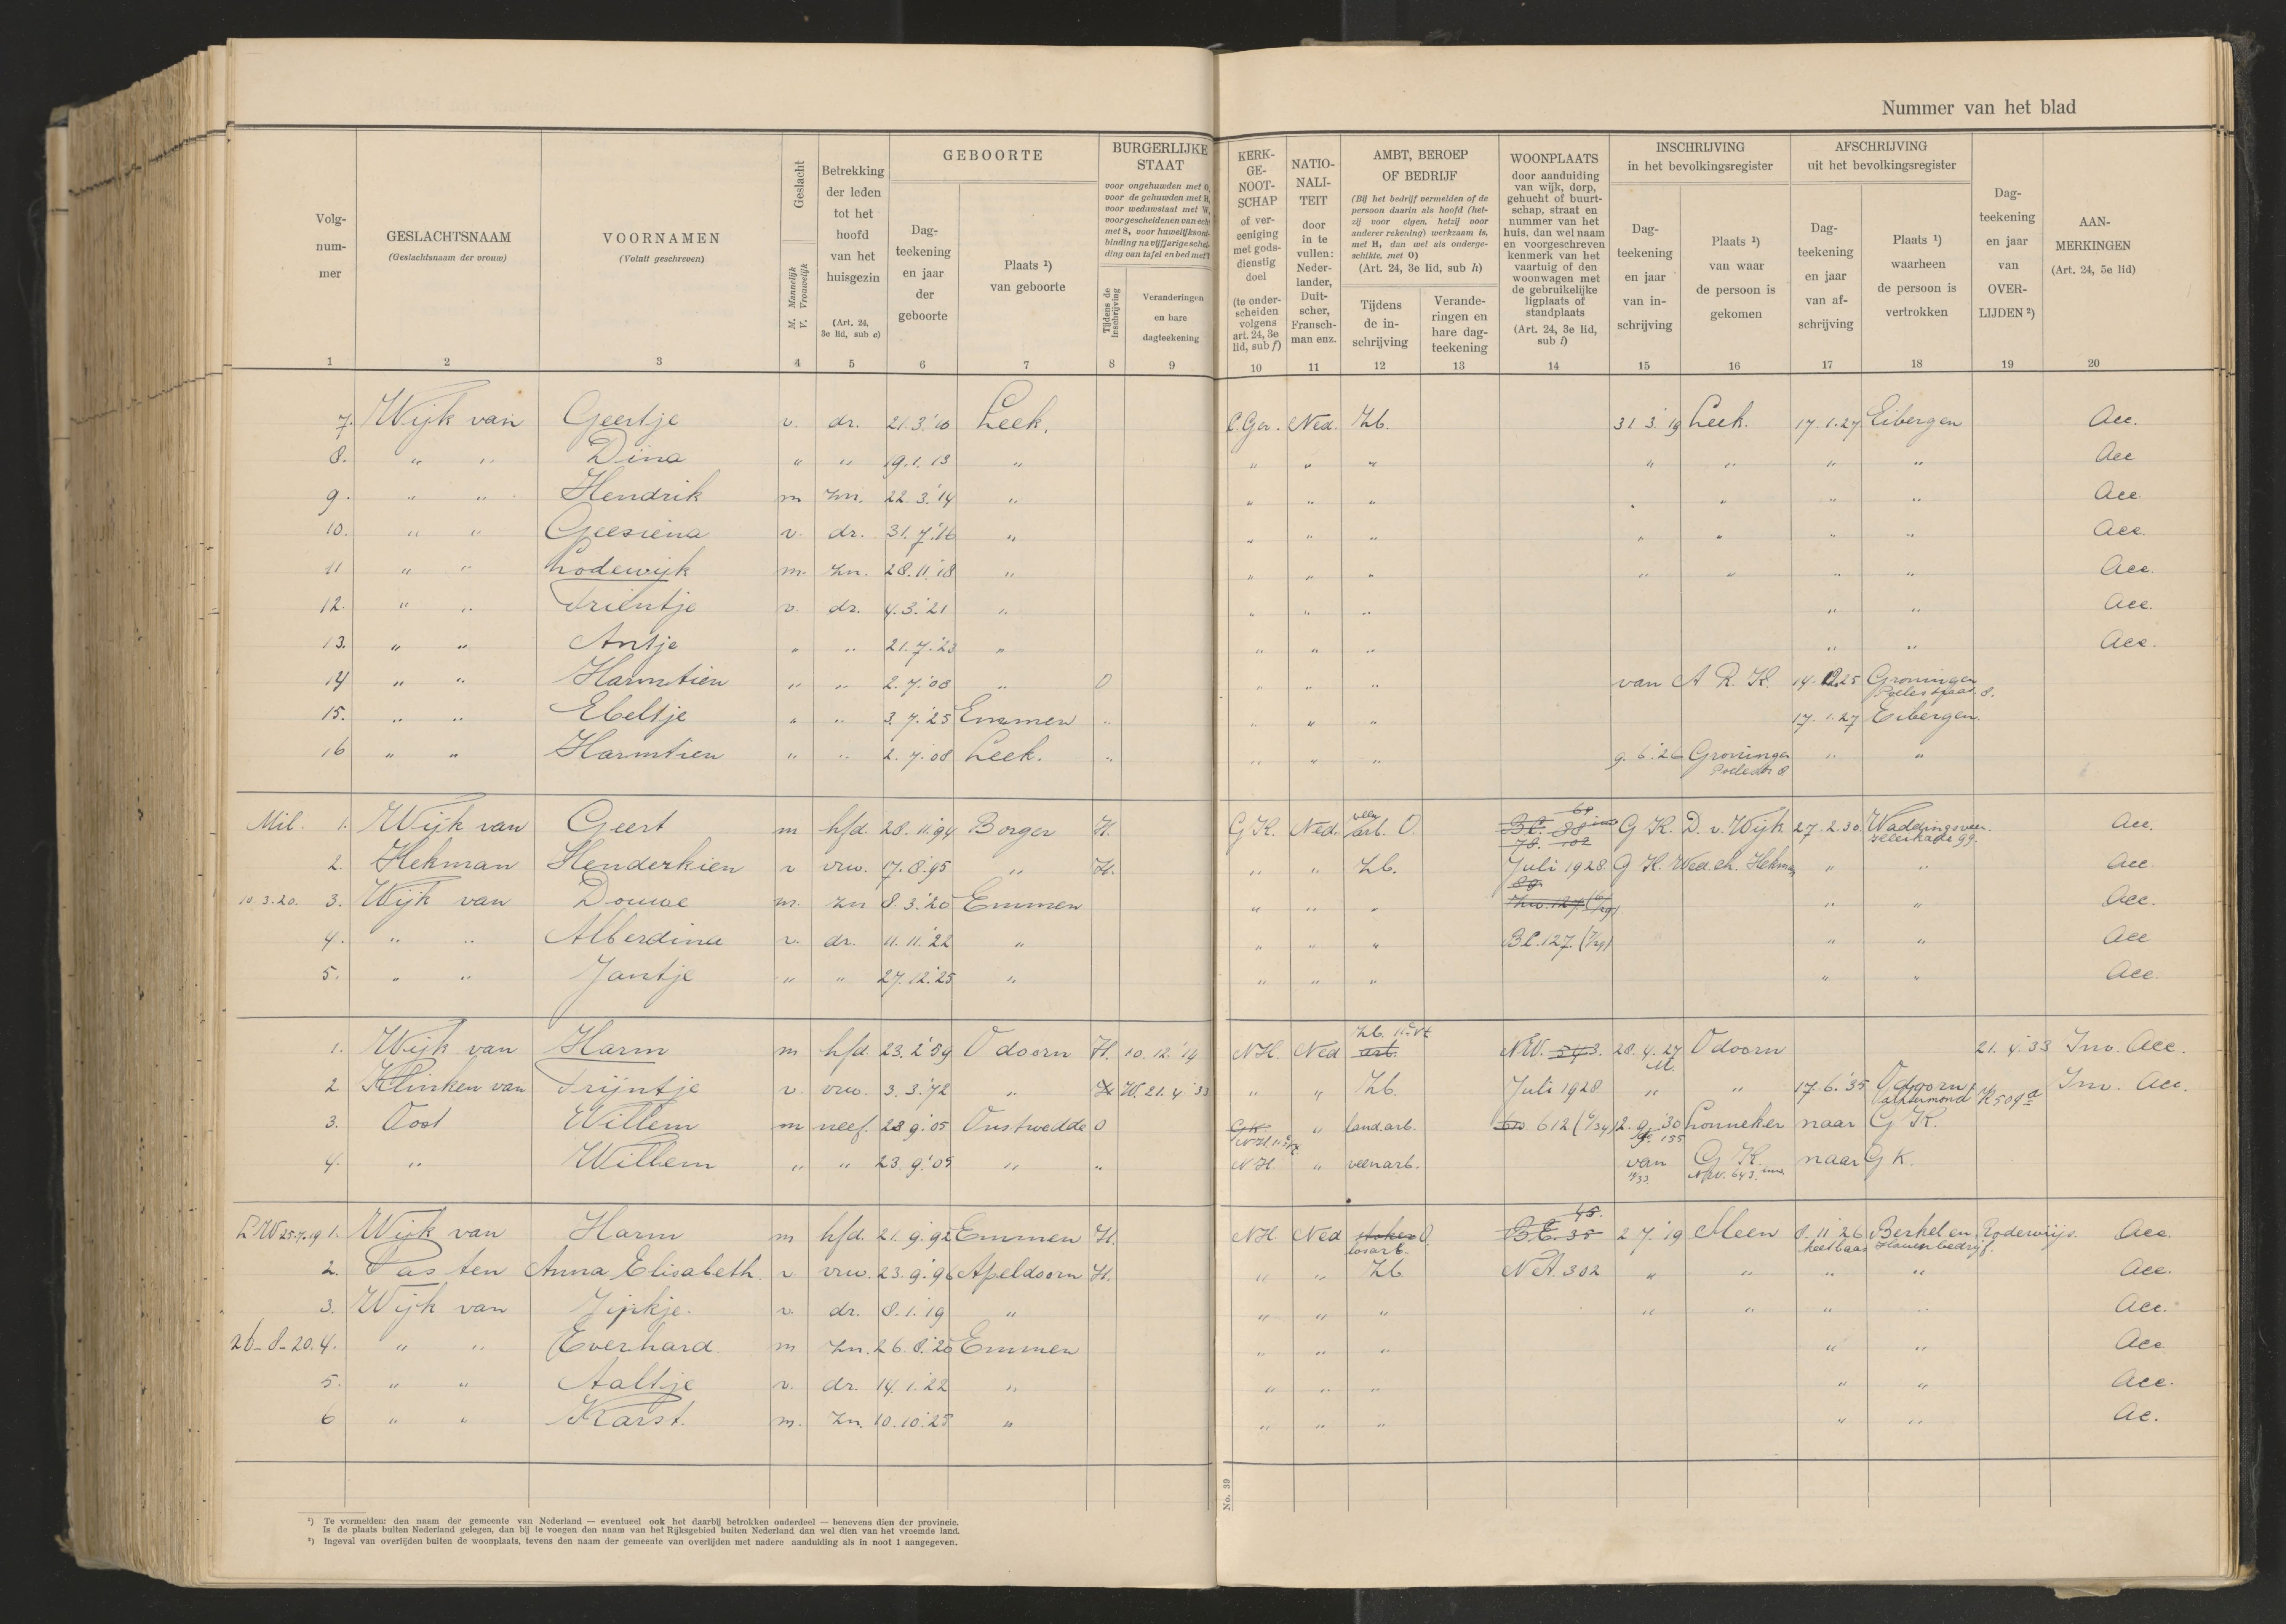 Nummer van het blad
Volg-
num-
mer
1
GESLACHTSNAAM
(Geslachtsnaam der vrouw)
2
VOORNAMEN
(Voluit geschreven)
3
Geslacht
M. Mannelijk
V. Vrouwelijk
4
Betrekking
der leden
tot het
hoofd
van het
huisgezin
(Art. 24,
3e lid, sub c)
5
GEBOORTE
Dag-
teekening
en jaar
der
geboorte
6
Plaats ¹)
van geboorte
7
BURGERLIJKE
STAAT
voor ongehuwden met O,
voor de gehuwden met H,
voor weduwstaat met W,
voor gescheidenen van echt
met S, voor huwelijksont-
binding na vijfjarige schei-
ding van tafel en bed met
Tijdens de
inschrijving
8
Veranderingen
en hare
dagteekening
9
KERK-
GE-
NOOT-
SCHAP
of ver-
eeniging
met gods-
dienstig
doel
(te onder-
scheiden
volgens
art. 24, 3e
lid, sub f)
10
NATIO-
NALI-
TEIT
door
in te
vullen:
Neder-
lander,
Duit-
scher,
Fransch-
man enz.
11
AMBT, BEROEP
OF BEDRIJF
(Bij het bedrijf vermelden of de
persoon daarin als hoofd (het-
zij voor eigen, hetzij voor
anderer rekening) werkzaam is,
met H, dan wel als onderge-
schikte, met O)
(Art. 24, 3e lid, sub h)
Tijdens
de in-
schrijving
12
Verande-
ringen en
hare dag-
teekening
13
WOONPLAATS
door aanduiding
van wijk, dorp,
gehucht of buurt-
schap, straat en
nummer van het
huis, dan wel naam
en voorgeschreven
kenmerk van het
vaartuig of den
woonwagen met
de gebruikelijke
ligplaats of
standplaats
(Art. 24, 3e lid,
sub i)
14
INSCHRIJVING
in het bevolkingsregister
Dag-
teekening
en jaar
van in-
schrijving
15
Plaats ¹)
van waar
de persoon is
gekomen
16
AFSCHRIJVING
uit het bevolkingsregister
Dag-
teekening
en jaar
van af-
schrijving
17
Plaats ¹)
waarheen
de persoon is
vertrokken
18
Dag-
teekening
en jaar
van
OVER-
LIJDEN ²)
19
AAN-
MERKINGEN
(Art. 24, 5e lid)
20
7. Wijk van Geertje v. dr. 21.3.'10 Leek. C.Ger. Ned. Zb. 31 3.'19 Leek. 17.1.27 Eibergen Acc.
8. " " Dina " " 19.1.13 " " " " " " " " Acc
9. " " Hendrik m zn. 22.3.'14 " " " " " " " Acc.
10. " " Geesiena v. dr. 31.7.'16 " " " " " " " " Acc.
11 " " Lodewijk m. zn. 28.11.'18 " " " " " " " " Acc.
12. " " Trientje v. dr. 4.3.'21 " " " " " " Acc.
13. " " Antje " " 21.7.'23 " " " " " " Acc.
14 " " Harmtien " " 2.7.'08 " O " " " van A R. K. 14. 25 Groningen
8.
15. " " Ebeltje " " 3.7.'25 Emmen " " " " 17.1.27 Eibergen.
16 " " Harmtien " " 2.7.'08 Leek. " " " " 9.6.'26 Groningen " "
Mil. 1. Wijk van Geert m hfd. 28.11.'94 Borger H. G K. Ned. arb. O. G K. D. v. Wijk 27.2.30. Waddingsveen
99.
2. Hekman Henderkien v vrw. 17.8.'95 " H. " " Zb. Juli 1928 G K. Wed. ch. Hekman " " Acc
10.3.20. 3. Wijk van Douwe m. zn 8.3.'20 Emmen " " " " " Acc.
4. " " Alberdina v. dr. 11.11.'22 " " " " B.E. 127. " " Acc
5. " " Jantje " " 27.12.'25 " " " " " " Acc.
1. Wijk van Harm m hfd. 23.2.'59 Odoorn H. 10.12.'14 NH. Ned arb. NW. 28.4.27 Odoorn 21.4.'33 Inv. Acc.
2 Klinken van Trijntje v. vrw. 3.3.'72 " H W. 21.4.'33 " " Zb. Juli 1928 " " 17.6.'35 Odoorn Inv. Acc.
3. Oost Willem m neef. 23.9.'05 Onstwedde O G K. " land.arb. 612 2.9.'30 Lonneker naar G K.
4. " Willem " " 23.9.'05 " " N H. " veenarb. van G K. naar G K.
25.7.19 1. Wijk van Harm m hfd. 21.9.92 Emmen H. NH Ned stoker O. B.E. 35 45. 2 7.'19 8.11.'26 Berkel en Rodenrijs. Acc.
losarb.
2. Pas ten Anna Elisabeth v vrw. 23.9.'96 Apeldoorn H. " " Zb N A. 302 " " " " Acc.
3. Wijk van Jipkje. v. dr. 8.1.'19 " " " " " " " " Acc.
26-8-20. 4. " " Everhard. m zn. 26.8.'20 Emmen " " " " " Acc
5. " " Aaltje v. dr. 14.1.'22 " " " " " " Acc.
6 " " Karst. m. zn. 10.10.'25 " " " " " " Ac.
No. 39
¹) Te vermelden: den naam der gemeente van Nederland — eventueel ook het daarbij betrokken onderdeel — benevens dien der provincie.
Is de plaats buiten Nederland gelegen, dan bij te voegen den naam van het Rijksgebied buiten Nederland dan wel dien van het vreemde land.
²) Ingeval van overlijden buiten de woonplaats, tevens den naam der gemeente van overlijden met nadere aanduiding als in noot 1 aangegeven.